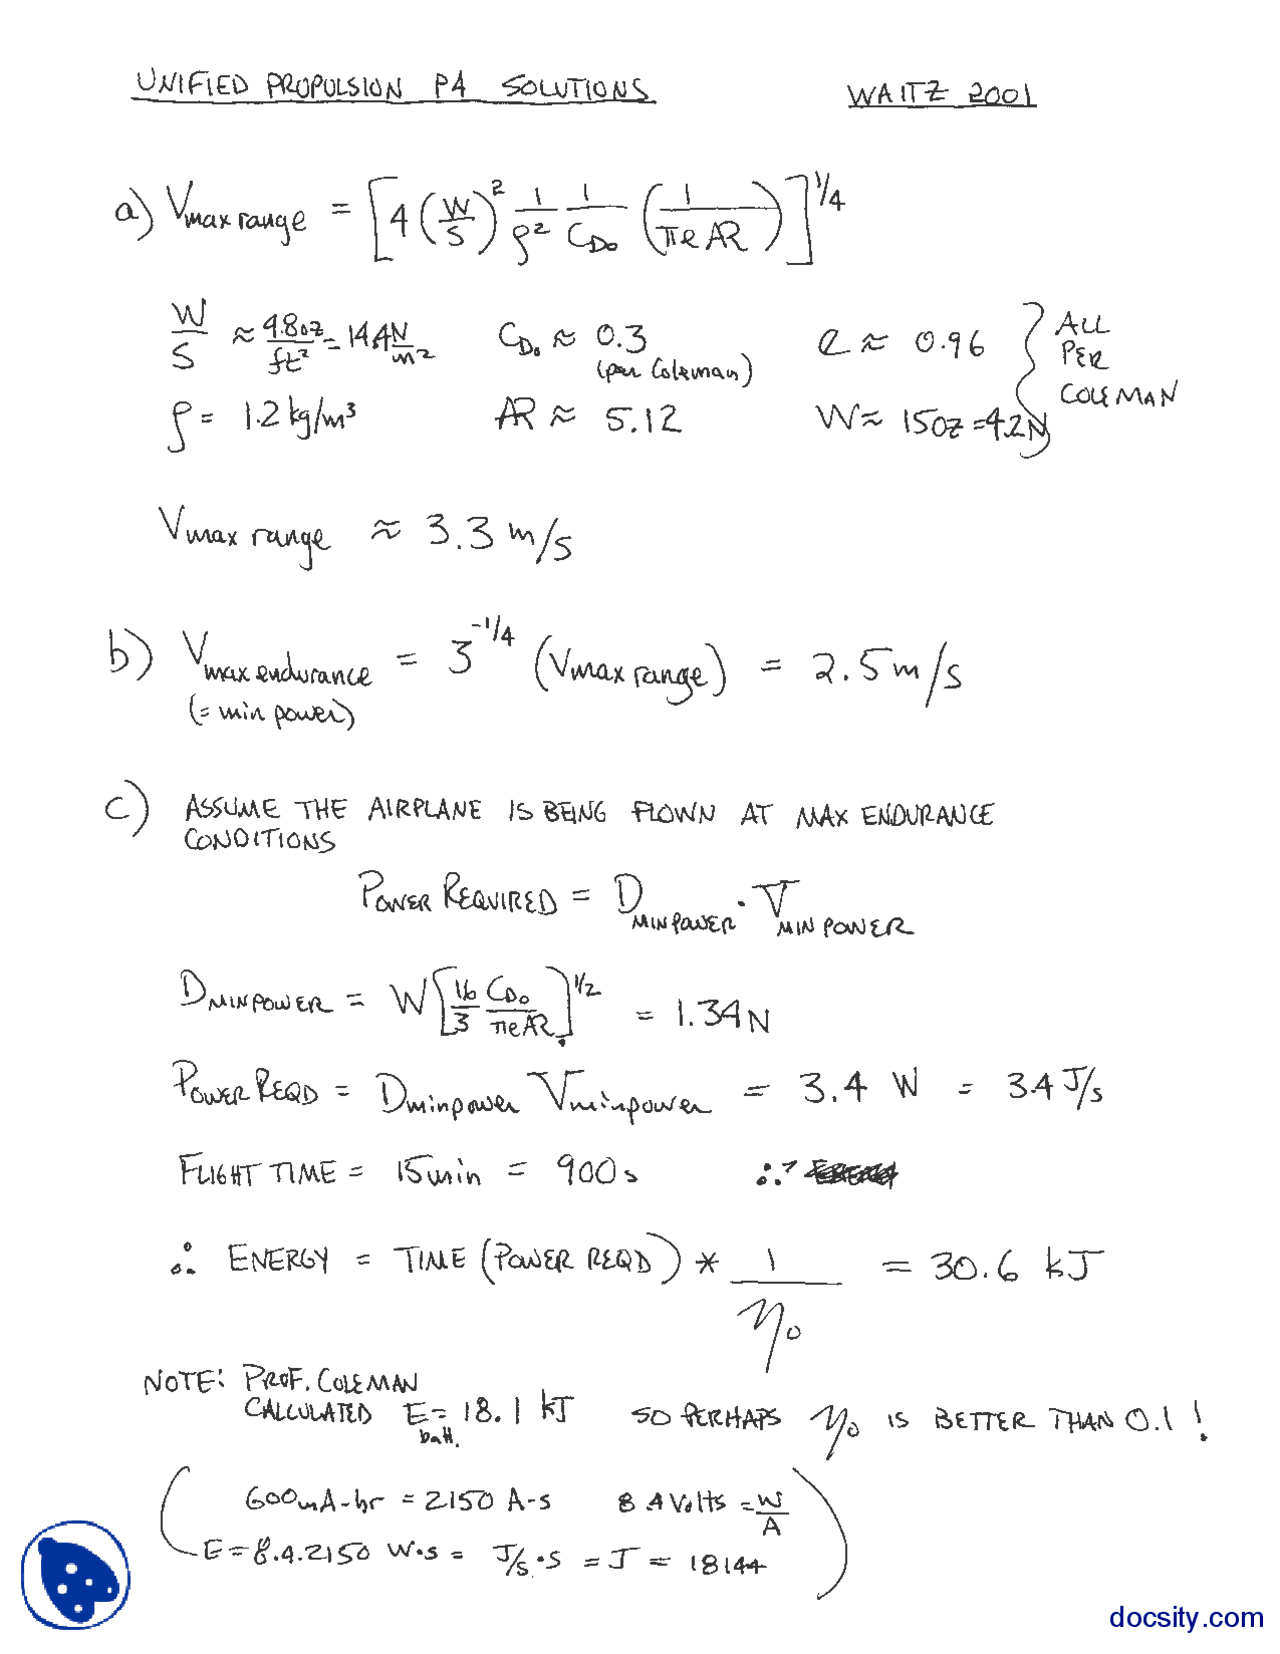 UNIFIED PROPULSION P4 SOLUTIONS WAITZ 2001
a) Vmax range = [4 (W/S)² 1/ρ² 1/C_D₀ (1/πeAR)]^1/4
W/S ≈ 4.8oz/ft² = 14.4 N/m² C_D₀ ≈ 0.3 (per Coleman) e ≈ 0.96 } ALL PER COLEMAN
ρ = 1.2 kg/m³ AR ≈ 5.12 W ≈ 15oz = 4.2N
Vmax range ≈ 3.3 m/s
b) Vmax endurance = 3^-1/4 (Vmax range) = 2.5 m/s
(= min power)
c) ASSUME THE AIRPLANE IS BEING FLOWN AT MAX ENDURANCE
CONDITIONS
POWER REQUIRED = D MIN POWER · V MIN POWER
D MIN POWER = W [16/3 C_D₀/πeAR]^1/2 = 1.34 N
POWER REQD = Dminpower Vminpower = 3.4 W = 3.4 J/s
FLIGHT TIME = 15min = 900s ∴
∴ ENERGY = TIME (POWER REQD) * 1/η₀ = 30.6 kJ
NOTE: PROF. COLEMAN
CALCULATED E batt. = 18.1 kJ SO PERHAPS η₀ IS BETTER THAN 0.1!
(600mA-hr = 2150 A-s 8.4 Volts = W/A
E = 8.4.2150 W·s = J/s·s = J = 18144)
docsity.com